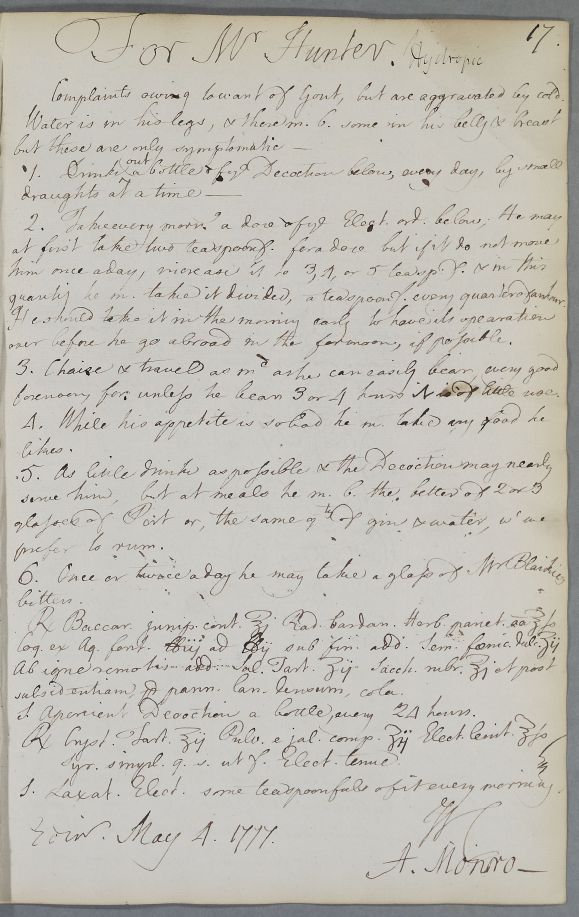 17.
For Mr Hunter. Hydropic
Complaints owing to want of Gout, but are aggravated by cold.
Water is in his legs, & there m. b. some in his belly & breast
but these are only symptomatic —
1. Drink out a bottle of ye Decoction below, every day, by small
draughts at a time —
2. Take every morng a dose of ye Elect. ord. below; He may
at first take two teaspoonf. for a dose but if it do not move
him once a day, increase it to 3, 4, or 5 teasp. f. & in this
quantity he m. take it divided, a teaspoonf. every quarter of an hour.
He should take it in the morning early to have its opearation
over before he go abroad in the forenoon, if possible.
3. Chaise & travel as md as he can easily bear, every good
forenoon for unless he bear 3 or 4 hours it is of little use.
4. While his appetite is so bad he m. take any food he
likes.
5. As little drink as possible & the Decoction may nearly
serve him, but at meals he m. b. the better of 2 or 3
glasses of Port or, the same qty of gin & water, wh we
prefer to rum.
6. Once or twice a day he may take a glass of Mr Blaikies
bitters.
℞ Baccar. junip. cont. ℥j Rad. bardan. Herb. pariet. aa ℥fs
Coq. ex Aq. font. ad sub fin. add. Sem. fœnic. dulc. ʒij
Ab igne remotis add. Sal. Tart. ʒij Sacch. rubr. ℥j et post
subsidentiam, p pann. lan. densum, cola.
S. Aperient Decoction a bottle, every 24 hours.
℞ Cryst. Tart. ℥ij Pulv. e jal. comp. ʒij Elect. lenit. ℥fs
Syr. simpl. q. s. ut f. Elect. tenue
S. Laxat. Elect. some teaspoonfuls of it every morning.
Edinr. May 4. 1777.
A. Monro —